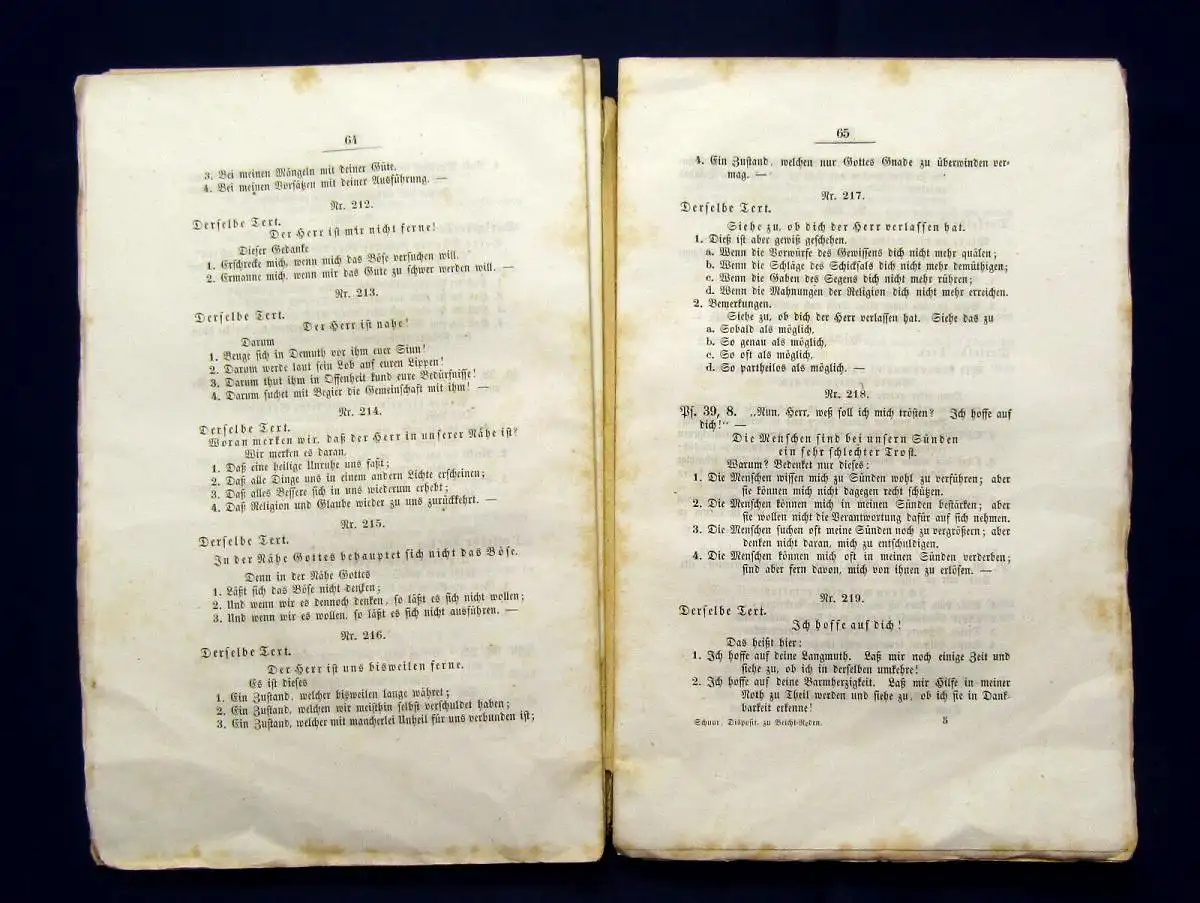 64
3. Bei meinen Mängeln mit deiner Güte.
4. Bei meinen Vorsätzen mit deiner Ausführung. —
Nr. 212.
Derselbe Text.
Der Herr ist mir nicht ferne!
Dieser Gedanke
1. Erschrecke mich, wenn mich das Böse versuchen will.
2. Ermanne mich, wenn mir das Gute zu schwer werden will. —
Nr. 213.
Derselbe Text.
Der Herr ist nahe!
Darum
1. Beuge sich in Demuth vor ihm euer Sinn!
2. Darum werde laut sein Lob auf euren Lippen!
3. Darum thut ihm in Offenheit kund eure Bedürfnisse!
4. Darum suchet mit Begier die Gemeinschaft mit ihm! —
Nr. 214.
Derselbe Text.
Woran merken wir, daß der Herr in unserer Nähe ist?
Wir merken es daran,
1. Daß eine heilige Unruhe uns faßt;
2. Daß alle Dinge uns in einem andern Lichte erscheinen;
3. Daß alles Bessere sich in uns wiederum erhebt;
4. Daß Religion und Glaube wieder zu uns zurückkehrt. —
Nr. 215.
Derselbe Text.
In der Nähe Gottes behauptet sich nicht das Böse.
Denn in der Nähe Gottes
1. Läßt sich das Böse nicht denken;
2. Und wenn wir es dennoch denken, so läßt es sich nicht wollen;
3. Und wenn wir es wollen, so läßt es sich nicht ausführen. —
Nr. 216.
Derselbe Text.
Der Herr ist uns bisweilen ferne.
Es ist dieses
1. Ein Zustand, welcher bisweilen lange währet;
2. Ein Zustand, welchen wir meisthin selbst verschuldet haben;
3. Ein Zustand, welcher mit mancherlei Unheil für uns verbunden ist;
65
4. Ein Zustand, welchen nur Gottes Gnade zu überwinden ver-
mag. —
Nr. 217.
Derselbe Text.
Siehe zu, ob dich der Herr verlassen hat.
1. Dieß ist aber gewiß geschehen.
a. Wenn die Vorwürfe des Gewissens dich nicht mehr quälen;
b. Wenn die Schläge des Schicksals dich nicht mehr demüthigen;
c. Wenn die Gaben des Segens dich nicht mehr rühren;
d. Wenn die Mahnungen der Religion dich nicht mehr erreichen.
2. Bemerkungen.
Siehe zu, ob dich der Herr verlassen hat. Siehe das zu
a. Sobald als möglich,
b. So genau als möglich,
c. So oft als möglich,
d. So partheilos als möglich. —
Nr. 218.
Ps. 39, 8. „Nun, Herr, weß soll ich mich trösten? Ich hoffe auf
dich!“ —
Die Menschen sind bei unsern Sünden
ein sehr schlechter Trost.
Warum? Bedenket nur dieses:
1. Die Menschen wissen mich zu Sünden wohl zu verführen; aber
sie können mich nicht dagegen recht schützen.
2. Die Menschen können mich in meinen Sünden bestärken; aber
sie wollen nicht die Verantwortung dafür auf sich nehmen.
3. Die Menschen suchen oft meine Sünden noch zu vergrößern; aber
denken nicht daran, mich zu entschuldigen.
4. Die Menschen können mich oft in meinen Sünden verderben;
sind aber fern davon, mich von ihnen zu erlösen. —
Nr. 219.
Derselbe Text.
Ich hoffe auf dich!
Das heißt hier:
1. Ich hoffe auf deine Langmuth. Laß mir noch einige Zeit und
siehe zu, ob ich in derselben umkehre!
2. Ich hoffe auf deine Barmherzigkeit. Laß mir Hilfe in meiner
Noth zu Theil werden und siehe zu, ob ich sie in Dank-
barkeit erkenne!
Schuur, Disposit. zu Beicht-Reden. 5